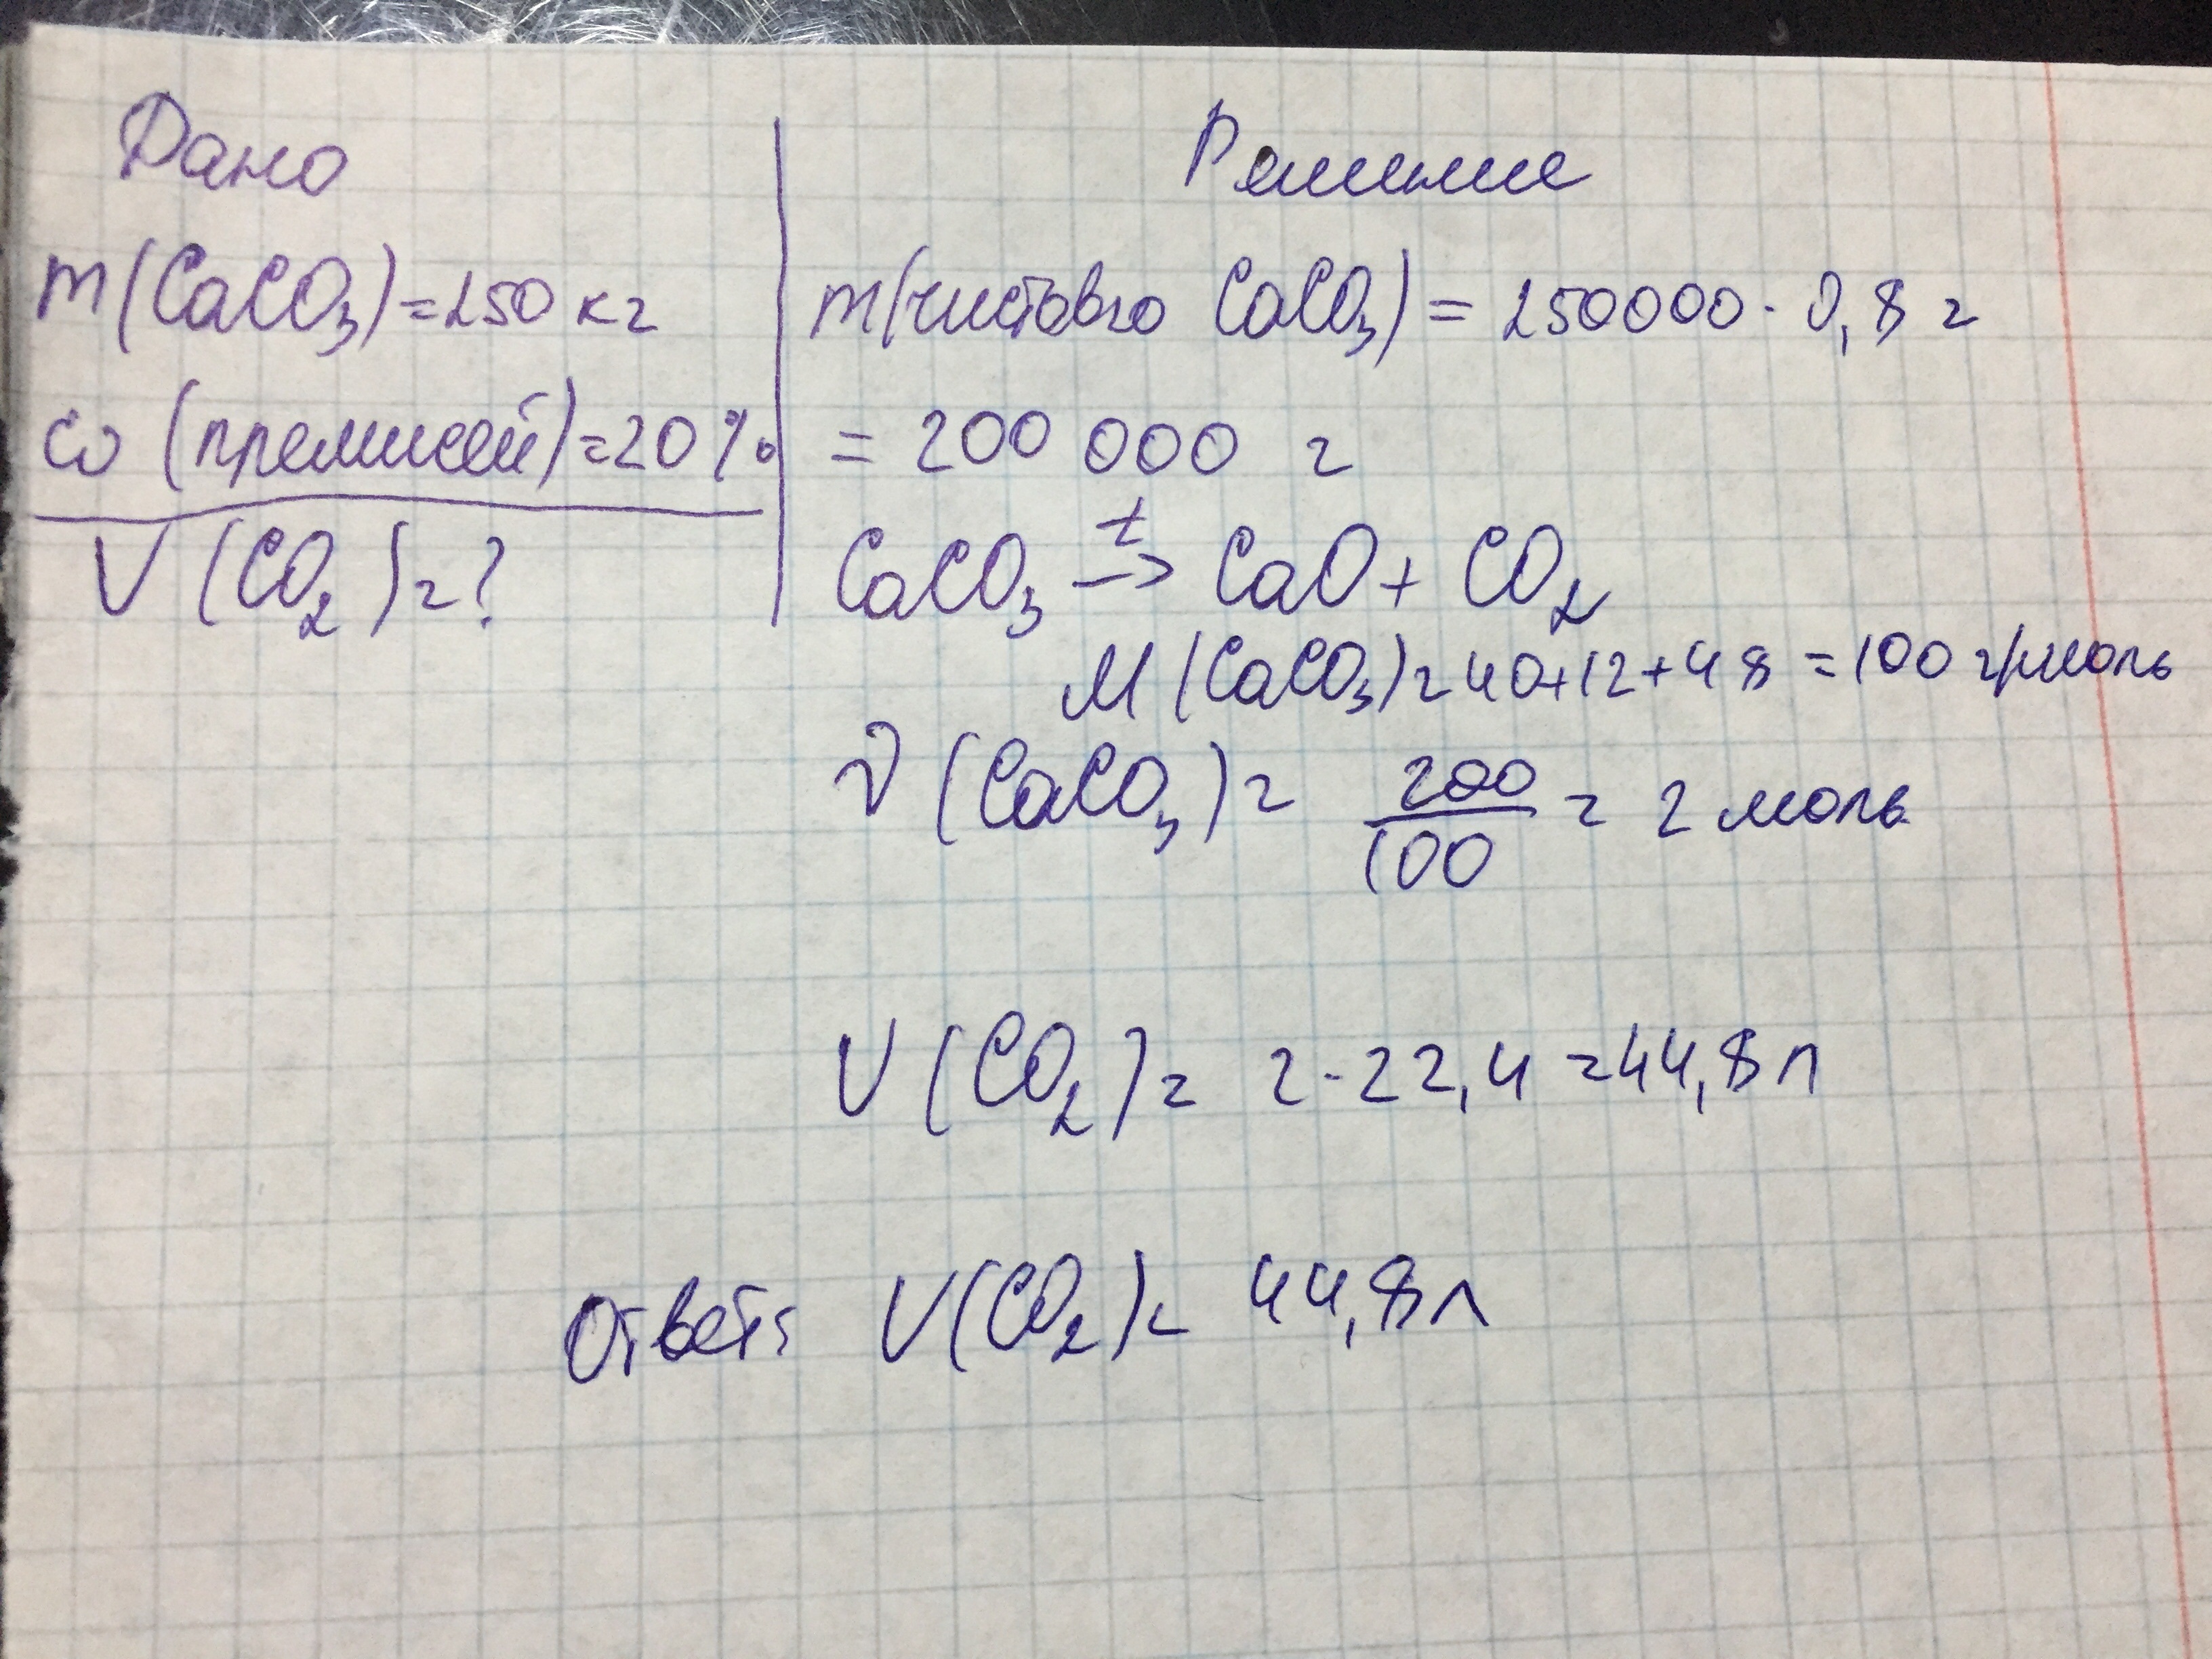 Дано
m(CaCO₃)=250 кг
ω (премисей)=20%
V(CO₂)=?
Решение
m(чистово CaCO₃) = 250000 · 0,8 г
= 200 000 г
CaCO₃ →ᵗ CaO + CO₂
M(CaCO₃)=40+12+48=100 г/моль
ν(CaCO₃)= 200/100 = 2 моль
V(CO₂)= 2·22,4=44,8л
Ответ: V(CO₂)= 44,8л